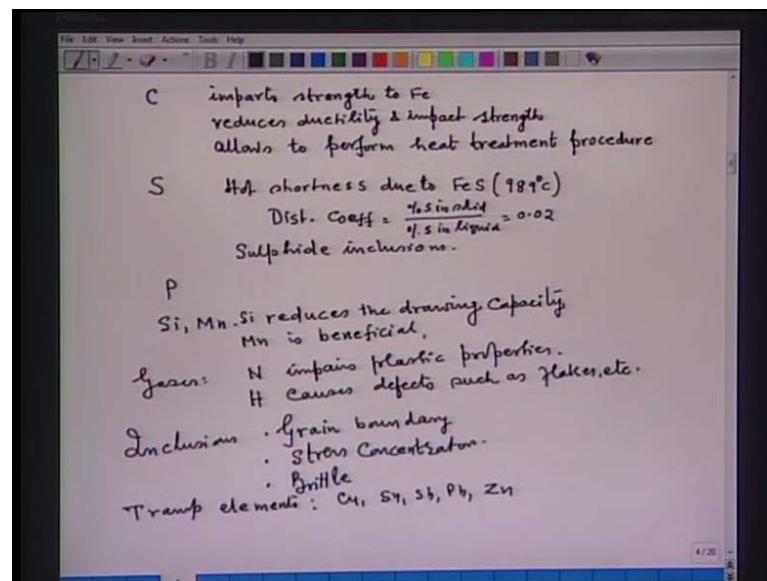 File Edit View Insert Actions Tools Help
B I
C imparts strength to Fe
reduces ductility & impact strength
allows to perform heat treatment procedure
S Hot shortness due to FeS (989°C)
Dist. Coeff = % S in solid / % S in liquid = 0.02
Sulphide inclusions.
P
Si, Mn. Si reduces the drawing capacity
Mn is beneficial,
Gases: N impairs plastic properties.
H causes defects such as flakes, etc.
Inclusions . Grain boundary
. Stress Concentrator.
. Brittle
Tramp elements : Cu, Sn, Sb, Pb, Zn
4/20